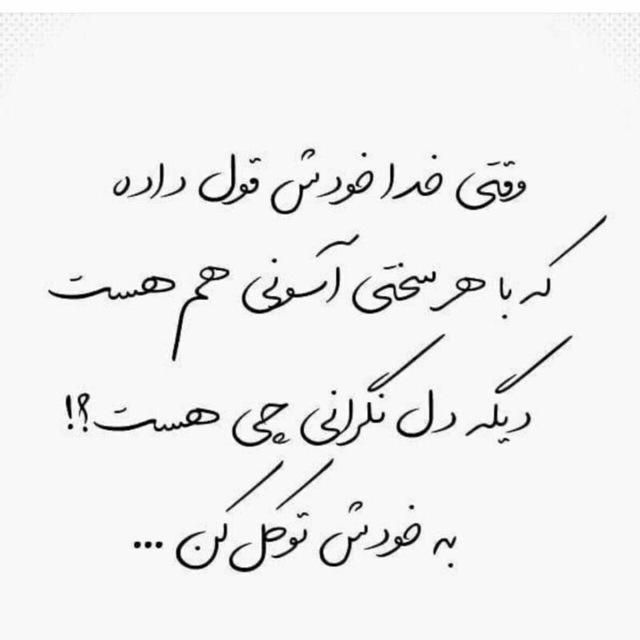 وقتی خدا خودش قول داده
که با هر سختی آسونی هم هست
دیگه دل نگرانی چی هست؟!
به خودش توکل کن ...